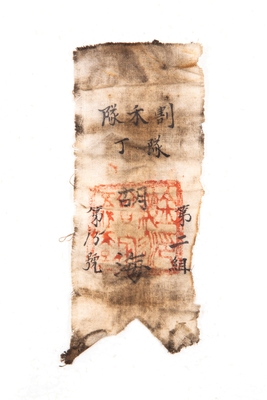 割禾隊
隊丁
胡海
第二組
第 號